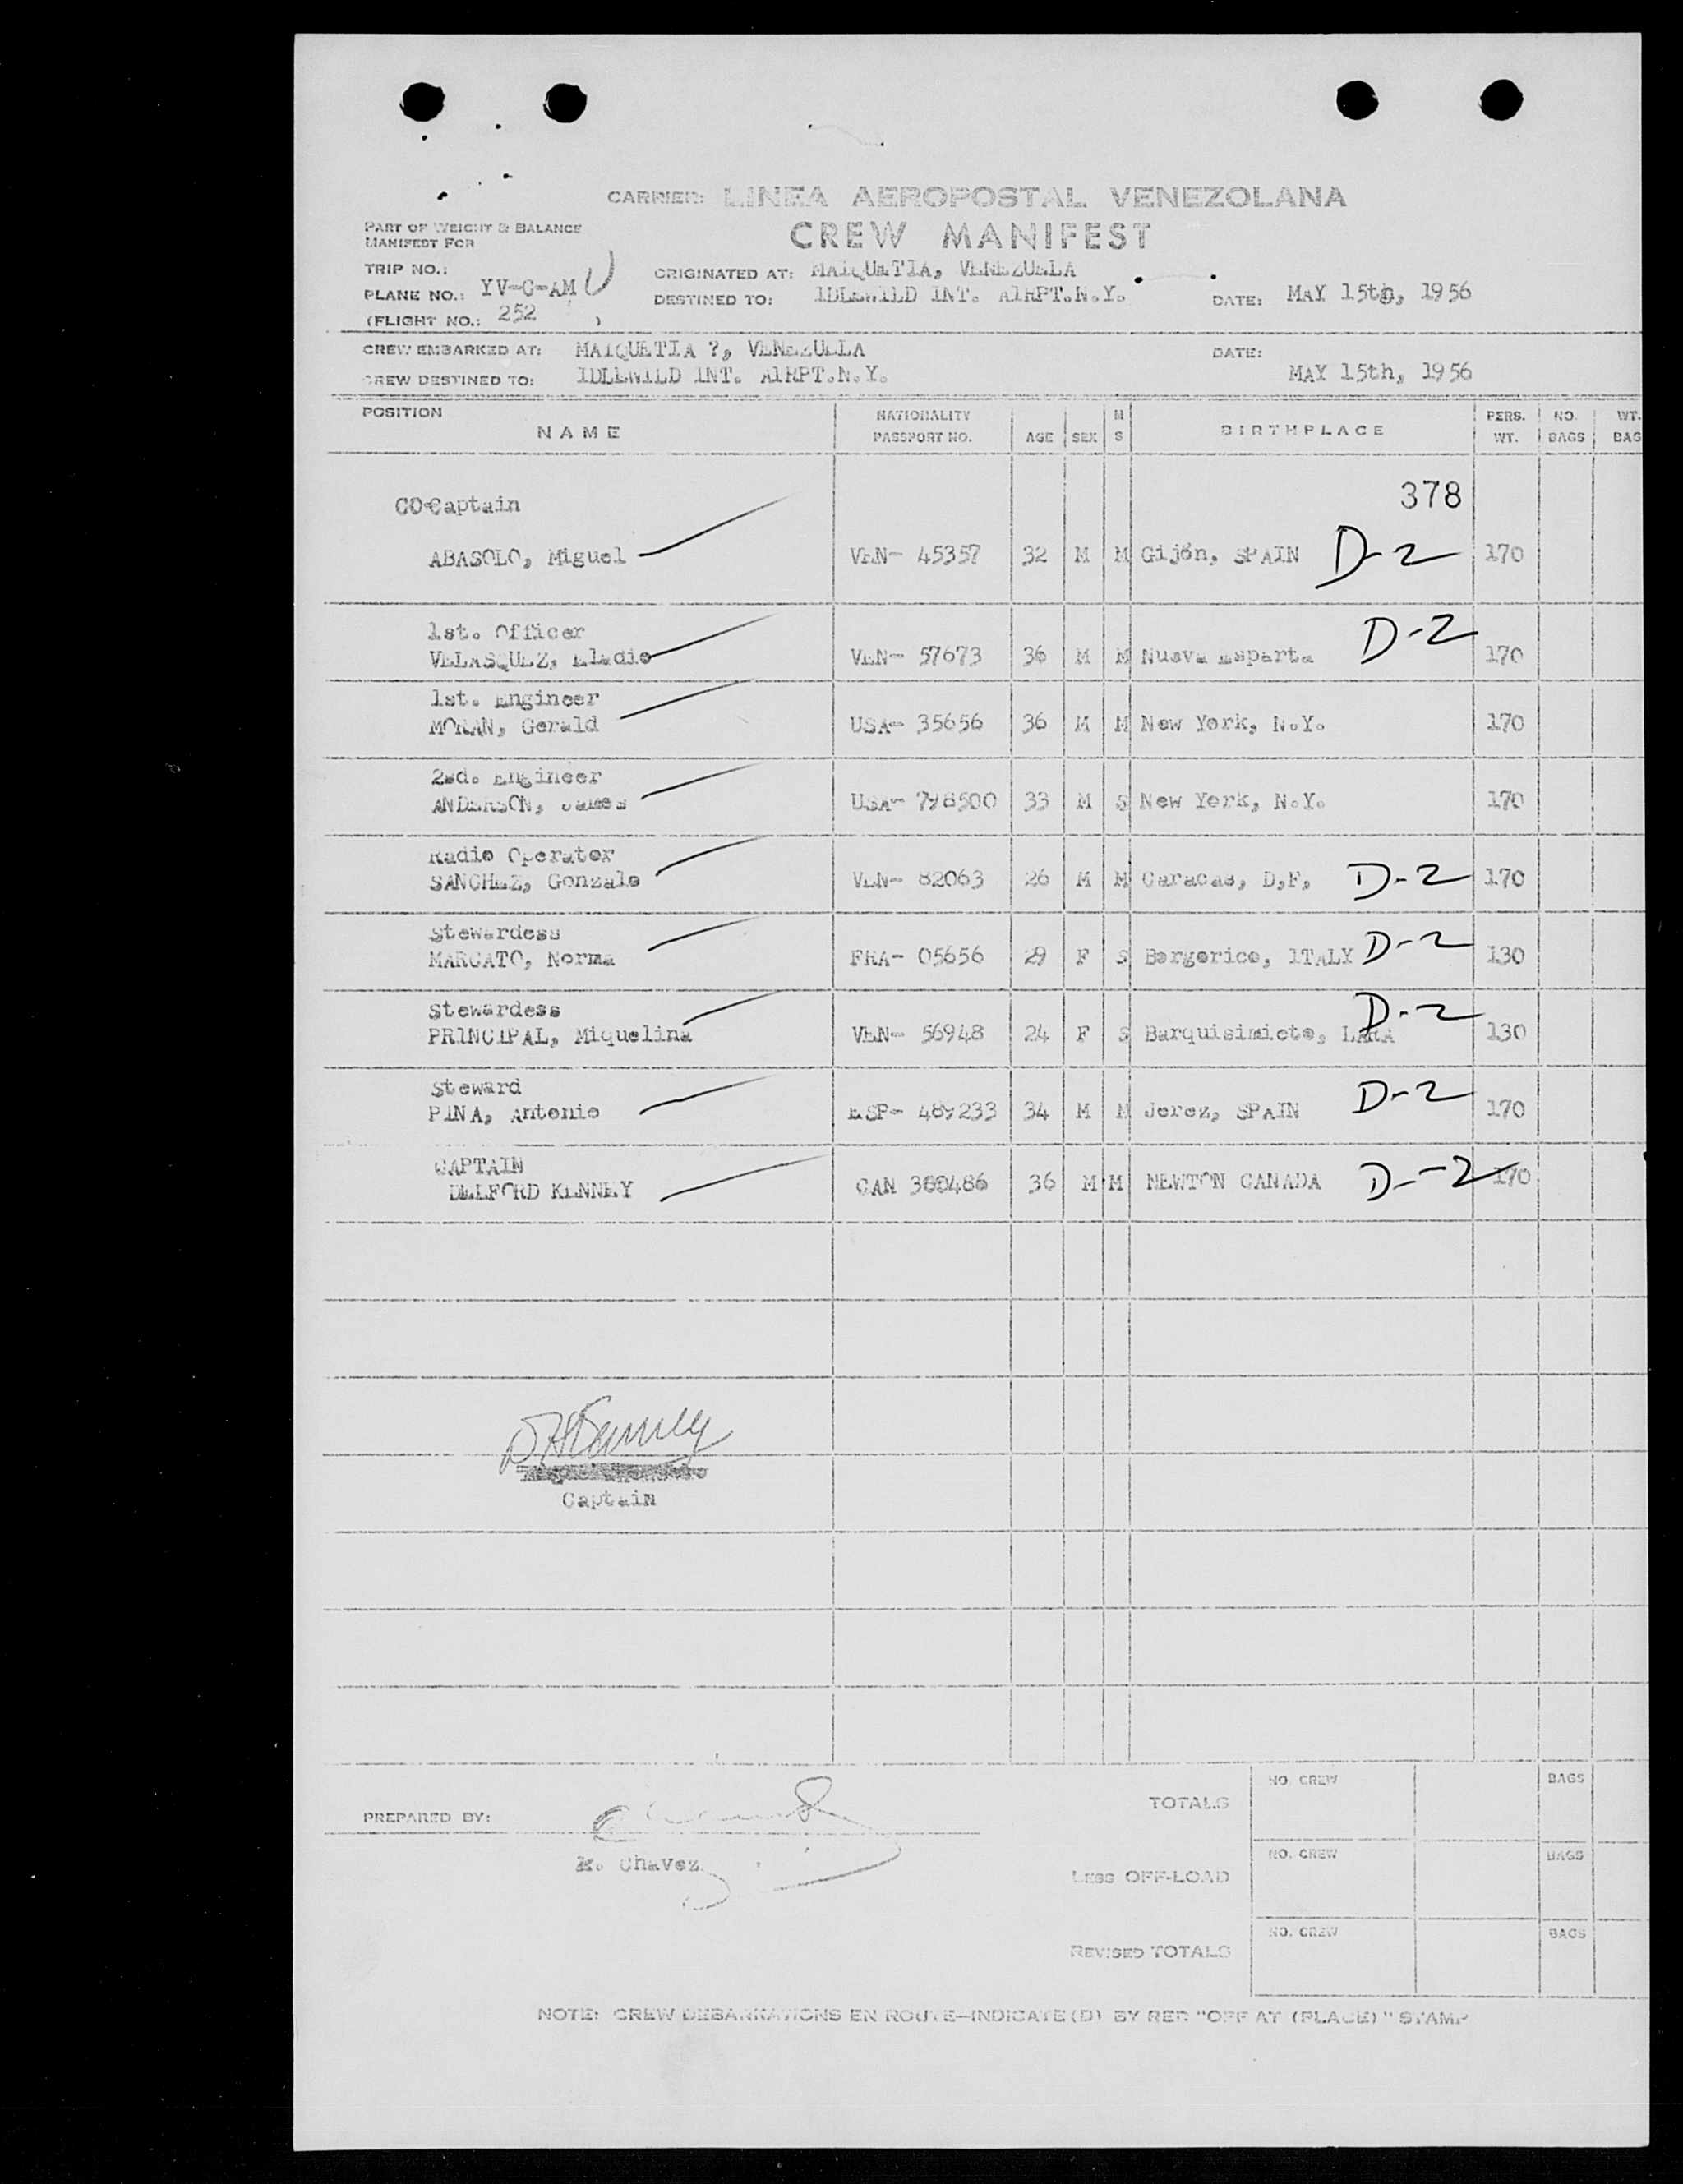 CARRIER: LINEA AEROPOSTAL VENEZOLANA
CREW MANIFEST
PART OF WEIGHT & BALANCE
MANIFEST FOR
TRIP NO.:
PLANE NO.: YV-C-AMU
(FLIGHT NO.: 252 )
ORIGINATED AT: MAIQUETIA, VENEZUELA
DESTINED TO: IDLEWILD INT. AIRPT.N.Y.
DATE: MAY 15th, 1956
CREW EMBARKED AT: MAIQUETIA ?, VENEZUELA
CREW DESTINED TO: IDLEWILD INT. AIRPT.N.Y.
DATE:
MAY 15th, 1956
POSITION NAME NATIONALITY PASSPORT NO. AGE SEX M S BIRTHPLACE PERS. WT. NO. BAGS WT. BAG
378
CO-Captain
ABASOLO, Miguel VEN- 45357 32 M M Gijón, SPAIN D-2 170
1st. Officer
VELASQUEZ, Eladio VEN- 57673 36 M M Nueva Esparta D-2 170
1st. Engineer
MORAN, Gerald USA- 35656 36 M M New York, N.Y. 170
2nd. Engineer
ANDERSON, James USA- 798500 33 M S New York, N.Y. 170
Radio Operator
SANCHEZ, Gonzalo VEN- 82063 26 M M Caracas, D,F, D-2 170
Stewardess
MARCATO, Norma FRA- 05656 29 F S Bergerico, ITALY D-2 130
Stewardess
PRINCIPAL, Miquelina VEN- 56948 24 F S Barquisimieto, LARA D-2 130
Steward
PINA, Antonio ESP- 489233 34 M M Jerez, SPAIN D-2 170
CAPTAIN
DELFORD KENNEY CAN 300486 36 M M NEWTON CANADA D-2 170
Captain
PREPARED BY:
M. Chavez
TOTALS NO. CREW BAGS
LESS OFF-LOAD NO. CREW BAGS
REVISED TOTALS NO. CREW BAGS
NOTE: CREW DEBARKATIONS EN ROUTE—INDICATE (D) BY RED "OFF AT (PLACE)" STAMP